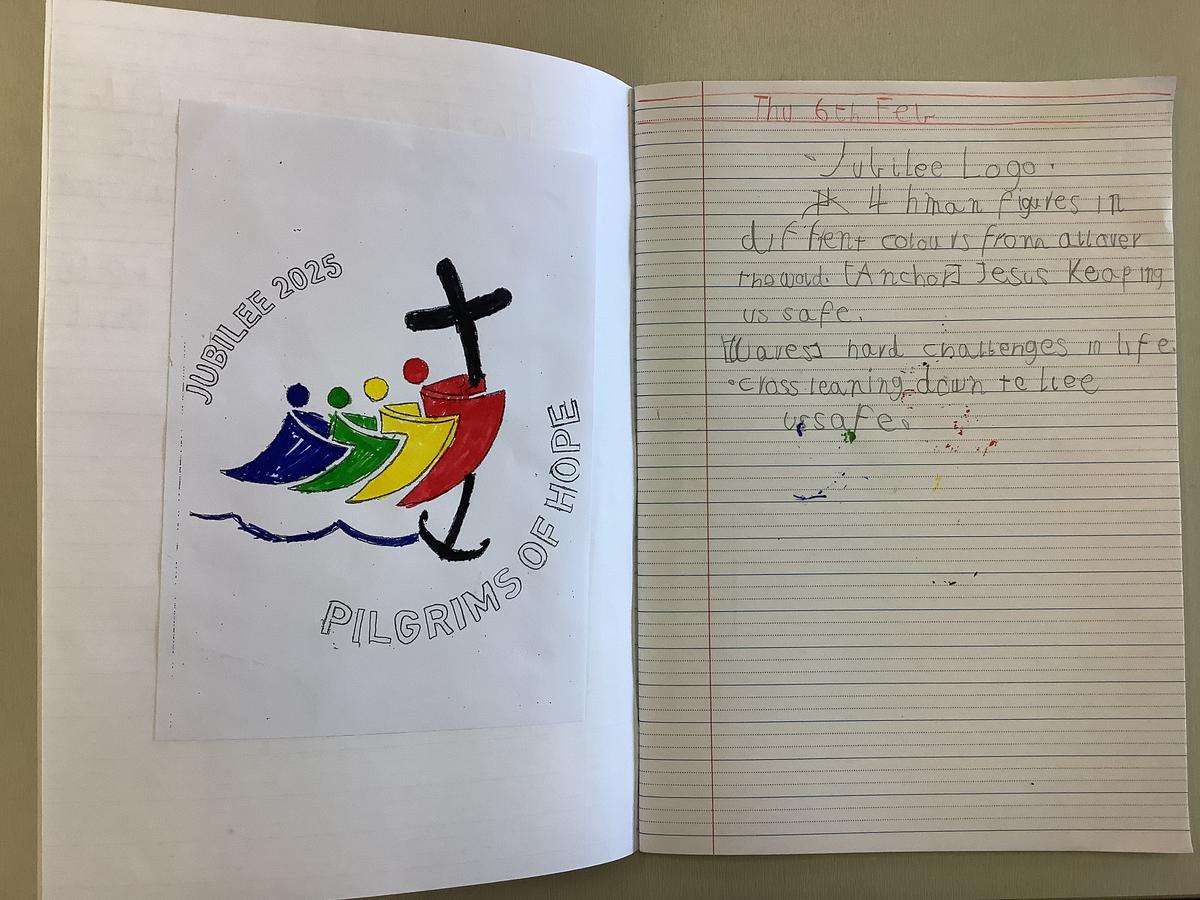 JUBILEE 2025
PILGRIMS OF HOPE
Thu 6th Feb
Jubilee Logo.
4 hman figures in
diffrent colours from allover
the [Anchor] Jesus Keaping
us safe.
[Waves] hard challenges in life.
•cross leaning down to
us safe.